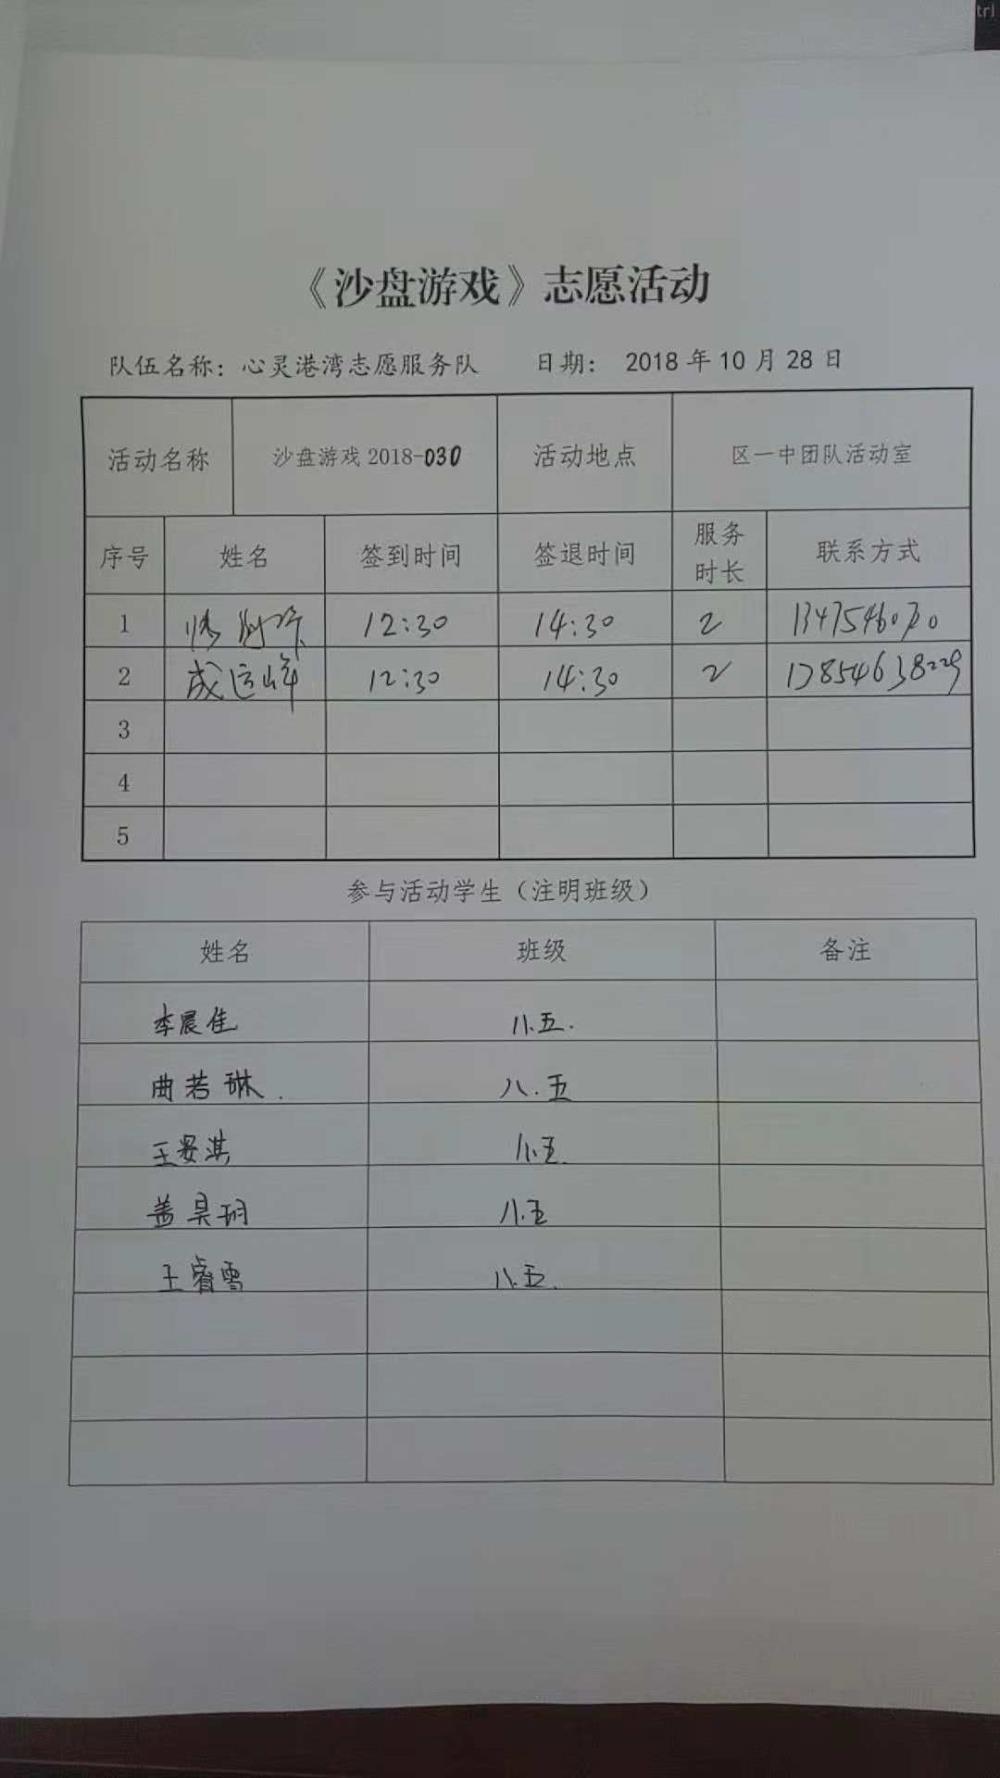 trl
《沙盘游戏》志愿活动
队伍名称：心灵港湾志愿服务队 日期： 2018 年 10 月 28 日
活动名称 沙盘游戏 2018-030 活动地点 区一中团队活动室
序号 姓名 签到时间 签退时间 服务时长 联系方式
1 12:30 14:30 2
2 成运峰 12:30 14:30 2 17854638229
3
4
5
参与活动学生（注明班级）
姓名 班级 备注
李晨佳 八.五.
曲若琳. 八.五
王安淇 八.五.
盖昊玥 八.五
王睿雪 八.五.